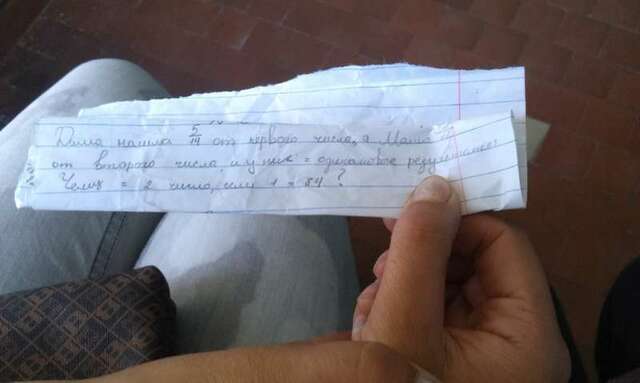 Дима нашла 5/14 от первого числа, а Маша
от второго числа и у них = одинаковые результаты.
Чему = 2 число, если 1 = 84?